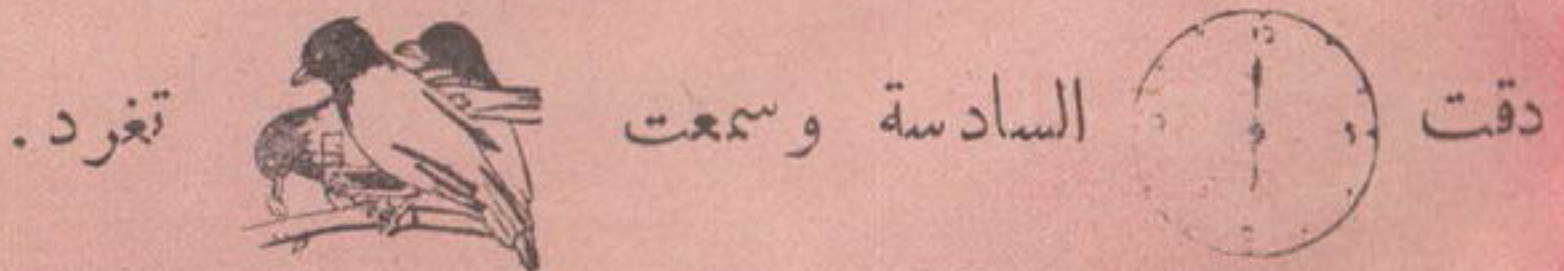 دقت السادسة وسمعت تغرد.